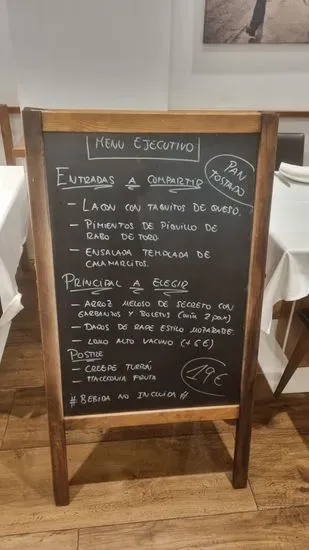 MENU EJECUTIVO
PAN TOSTADO
ENTRADAS A COMPARTIR
- LACON CON TAQUITOS DE QUESO.
- PIMIENTOS DE PIQUILLO DE
RABO DE TORO.
- ENSALADA TEMPLADA DE
CALAMARCITOS.
PRINCIPAL A ELEGIR
- ARROZ MELOSO DE SECRETO CON
GARBANZOS Y BOLETUS (MIN 2 PAX)
- DADOS DE RAPE ESTILO MOZARABE.
- LOMO ALTO VACUNO (+6€)
POSTRE
- CREEPE TURRÓN
- MACEDONIA FRUTA
19€
# BEBIDA NO INCLUIDA #